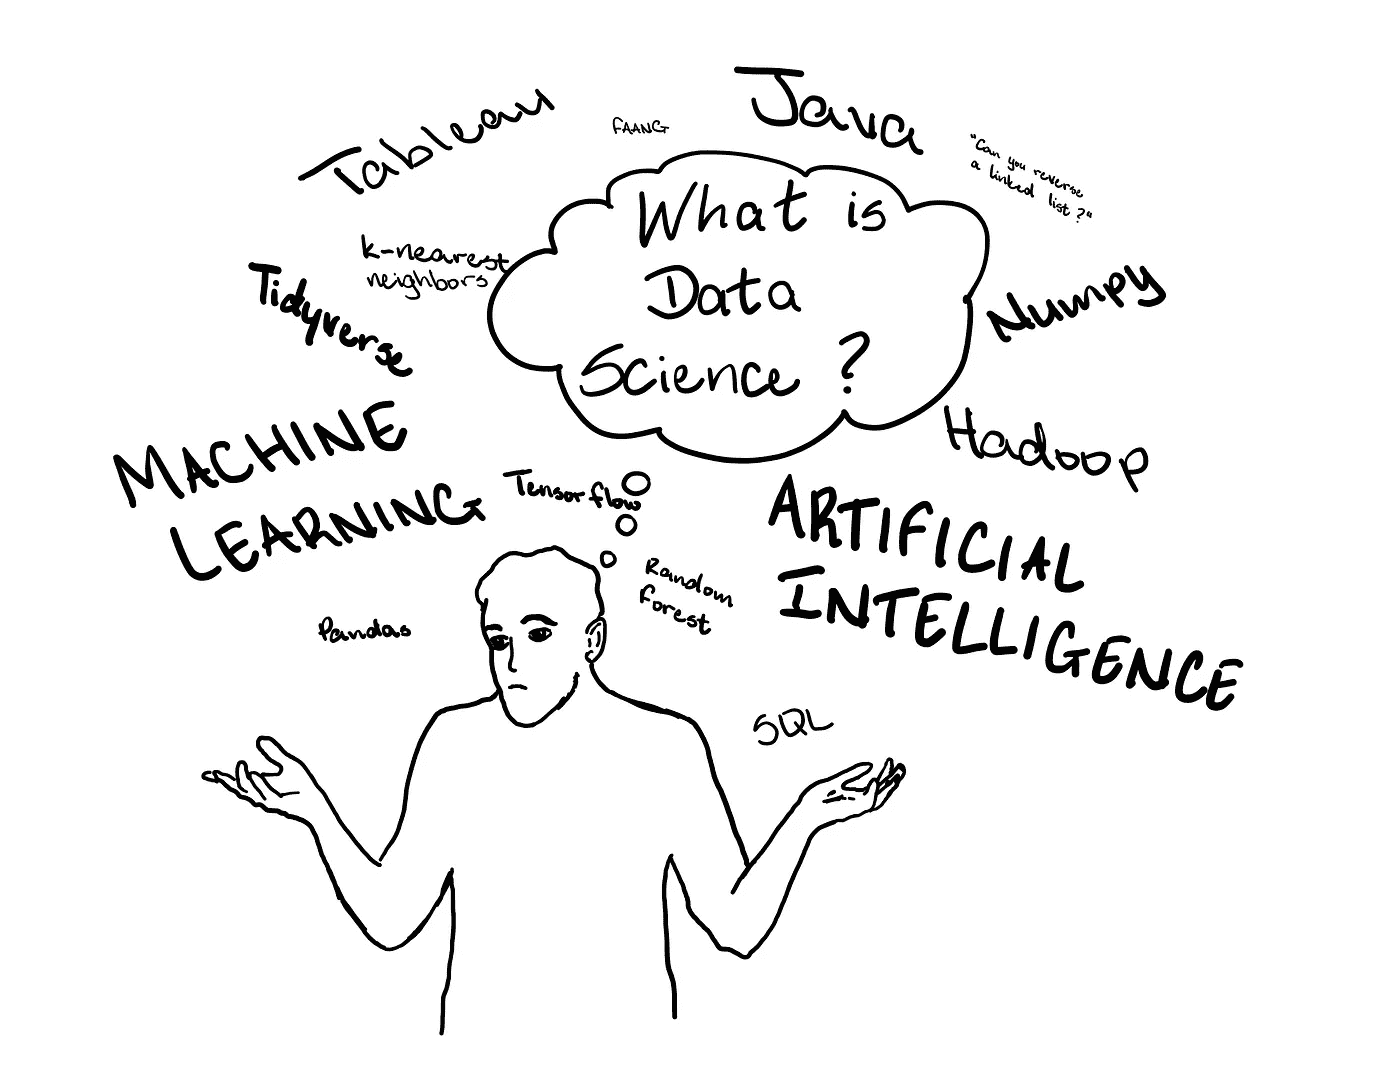 Tableau
FAANG
Java
"Can you reverse
a linked list?"
What is
Data
Science?
k-nearest
neighbors
Tidyverse
Numpy
MACHINE
LEARNING
Hadoop
Tensorflow
ARTIFICIAL
INTELLIGENCE
Random
forest
Pandas
SQL